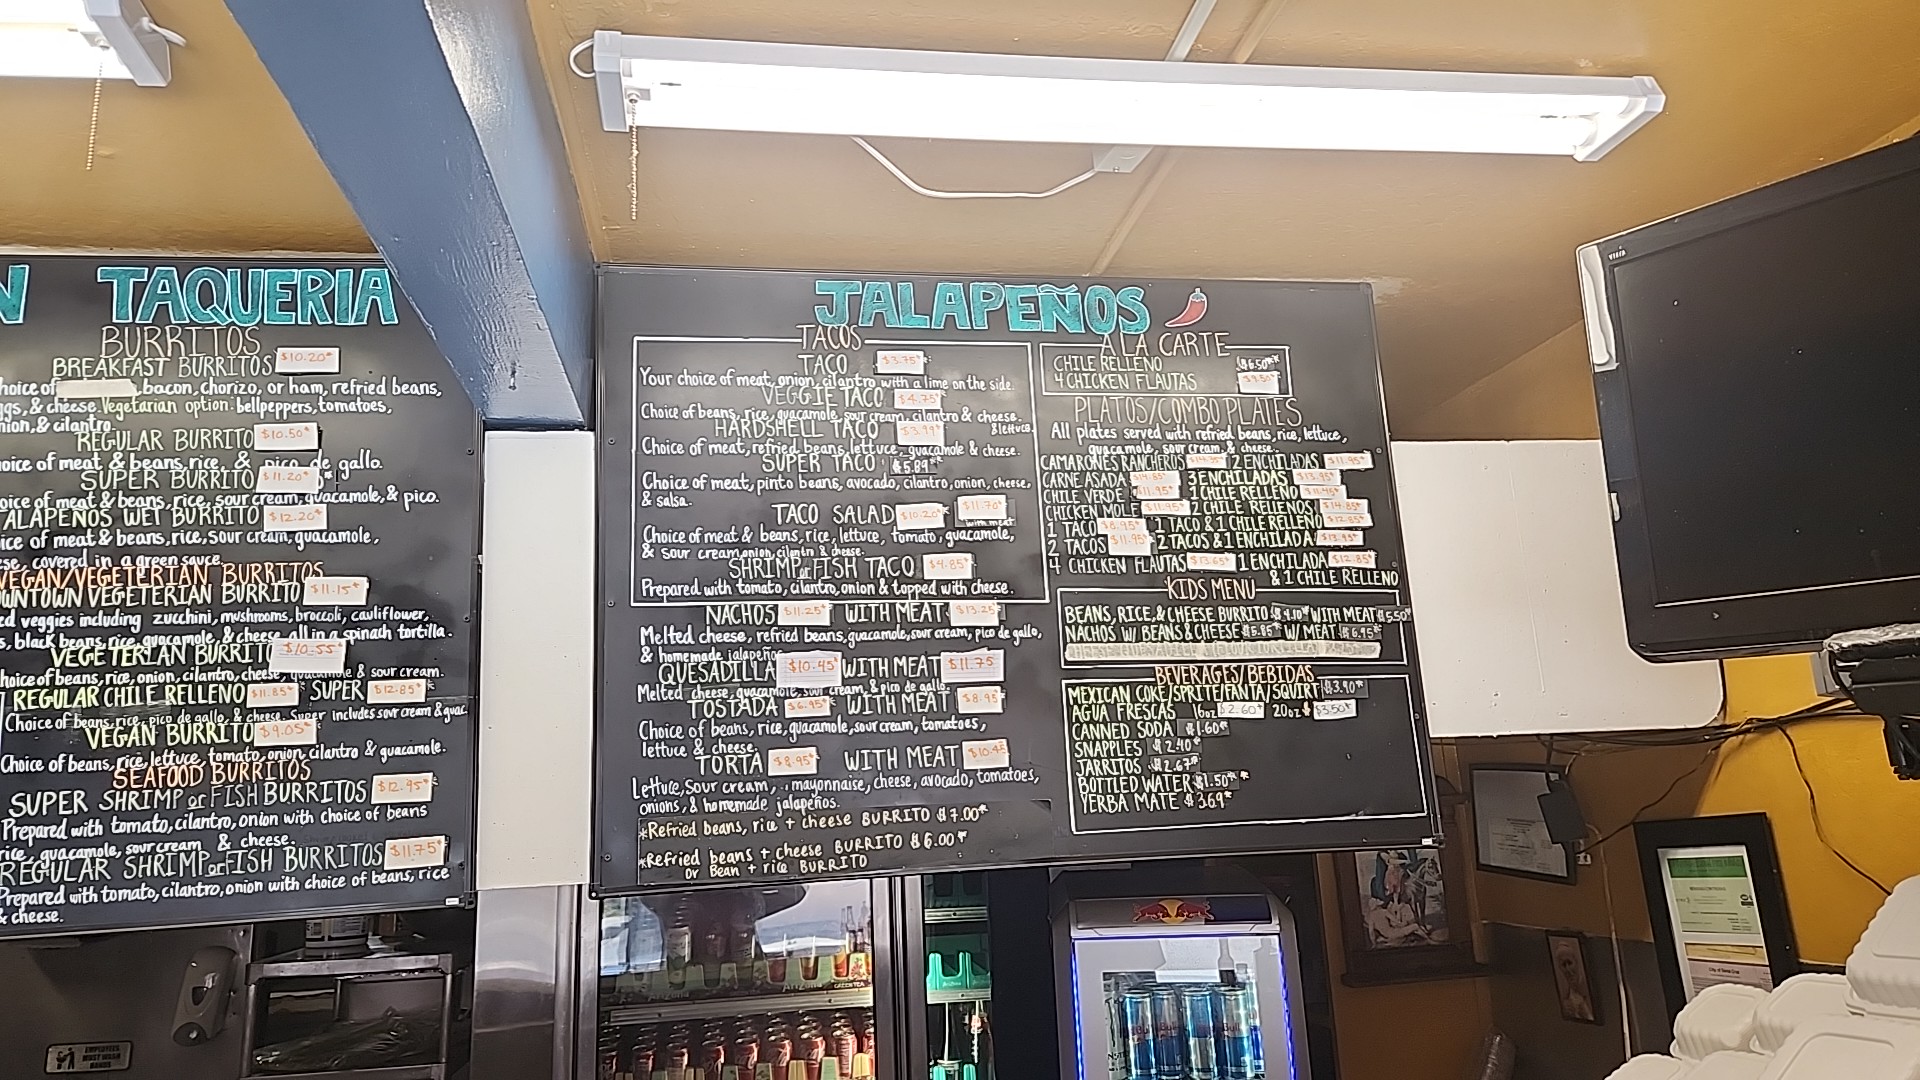 N TAQUERIA
BURRITOS
BREAKFAST BURRITOS $10.20*
hoice of bacon, chorizo, or ham, refried beans,
ggs, & cheese. Vegetarian option: bellpeppers, tomatoes,
nion, & cilantro.
REGULAR BURRITO $10.50*
oice of meat & beans, rice, & pico de gallo.
SUPER BURRITO $11.20*
oice of meat & beans, rice, sour cream, guacamole, & pico.
ALAPEÑOS WET BURRITO $12.20*
ice of meat & beans, rice, sour cream, guacamole,
ese, covered in a green sauce.
VEGAN/VEGETERIAN BURRITOS
OWNTOWN VEGETERIAN BURRITO $11.15*
ed veggies including zucchini, mushrooms, broccoli, cauliflower,
s, black beans, rice, guacamole, & cheese all in a spinach tortilla.
VEGETERIAN BURRITO $10.55*
hoice of beans, rice, onion, cilantro, cheese, guacamole & sour cream.
REGULAR CHILE RELLENO $11.85* SUPER $12.85*
Choice of beans, rice, pico de gallo, & cheese. Super includes sour cream & guac.
VEGAN BURRITO $9.05*
Choice of beans, rice, lettuce, tomato, onion, cilantro & guacamole.
SEAFOOD BURRITOS
SUPER SHRIMP or FISH BURRITOS $12.95*
Prepared with tomato, cilantro, onion with choice of beans
rice, guacamole, sour cream & cheese.
REGULAR SHRIMP or FISH BURRITOS $11.75*
Prepared with tomato, cilantro, onion with choice of beans, rice
& cheese.
JALAPEÑOS
TACOS
TACO $3.75*
Your choice of meat, onion, cilantro with a lime on the side.
VEGGIE TACO $4.75*
Choice of beans, rice, guacamole, sour cream, cilantro & cheese.
HARDSHELL TACO $3.99* & lettuce.
Choice of meat, refried beans, lettuce, guacamole & cheese.
SUPER TACO $5.89*
Choice of meat, pinto beans, avocado, cilantro, onion, cheese,
& salsa.
TACO SALAD $10.20* $11.70*
with meat
Choice of meat & beans, rice, lettuce, tomato, guacamole,
& sour cream, onion, cilantro & cheese.
SHRIMP or FISH TACO $4.85*
Prepared with tomato, cilantro, onion & topped with cheese.
NACHOS $11.25* WITH MEAT $13.25*
Melted cheese, refried beans, guacamole, sour cream, pico de gallo,
& homemade jalapeños
QUESADILLA $10.45* WITH MEAT $11.75
Melted cheese, guacamole, sour cream, & pico de gallo.
TOSTADA $6.95* WITH MEAT $8.95
Choice of beans, rice, guacamole, sour cream, tomatoes,
lettuce & cheese.
TORTA $8.95* WITH MEAT $10.45
Lettuce, Sour cream, mayonnaise, cheese, avocado, tomatoes,
onions, & homemade jalapeños.
*Refried beans, rice + cheese BURRITO $7.00*
*Refried beans + cheese BURRITO $6.00*
or Bean + rice BURRITO
A LA CARTE
CHILE RELLENO $6.50**
4 CHICKEN FLAUTAS $9.50*
PLATOS/COMBO PLATES
All plates served with refried beans, rice, lettuce,
guacamole, sour cream, & cheese.
CAMARONES RANCHEROS 2 ENCHILADAS $11.95*
CARNE ASADA $14.85* 3 ENCHILADAS $13.95*
CHILE VERDE $11.95* 1 CHILE RELLENO $11.45*
CHICKEN MOLE $11.95* 2 CHILE RELLENOS $14.85*
1 TACO $8.95* 1 TACO & 1 CHILE RELLENO $12.85*
2 TACOS $11.95* 2 TACOS & 1 ENCHILADA $13.95*
4 CHICKEN FLAUTAS $13.65* 1 ENCHILADA $12.85*
& 1 CHILE RELLENO
KIDS MENU
BEANS, RICE, & CHEESE BURRITO $4.10* WITH MEAT $5.50
NACHOS W/ BEANS & CHEESE $5.85* W/ MEAT $6.95*
BEVERAGES/BEBIDAS
MEXICAN COKE/SPRITE/FANTA/SQUIRT $3.90*
AGUA FRESCAS 16oz $2.60* 20oz $3.50*
CANNED SODA $1.60*
SNAPPLES $2.40*
JARRITOS $2.67*
BOTTLED WATER $1.50* *
YERBA MATE $3.69*
VIZIO
EMPLOYEES
MUST WASH
HANDS
AriZona
GREEN TEA
Red Bull